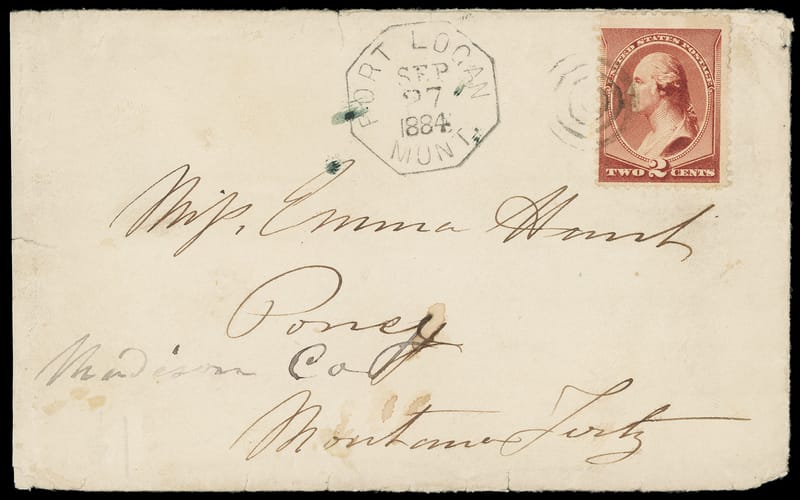 FORT LOGAN
SEP
27
1884
MUNT.
UNITED STATES POSTAGE
TWO 2 CENTS
Miss. Emma
Poney
Madison Co
Montana Terty